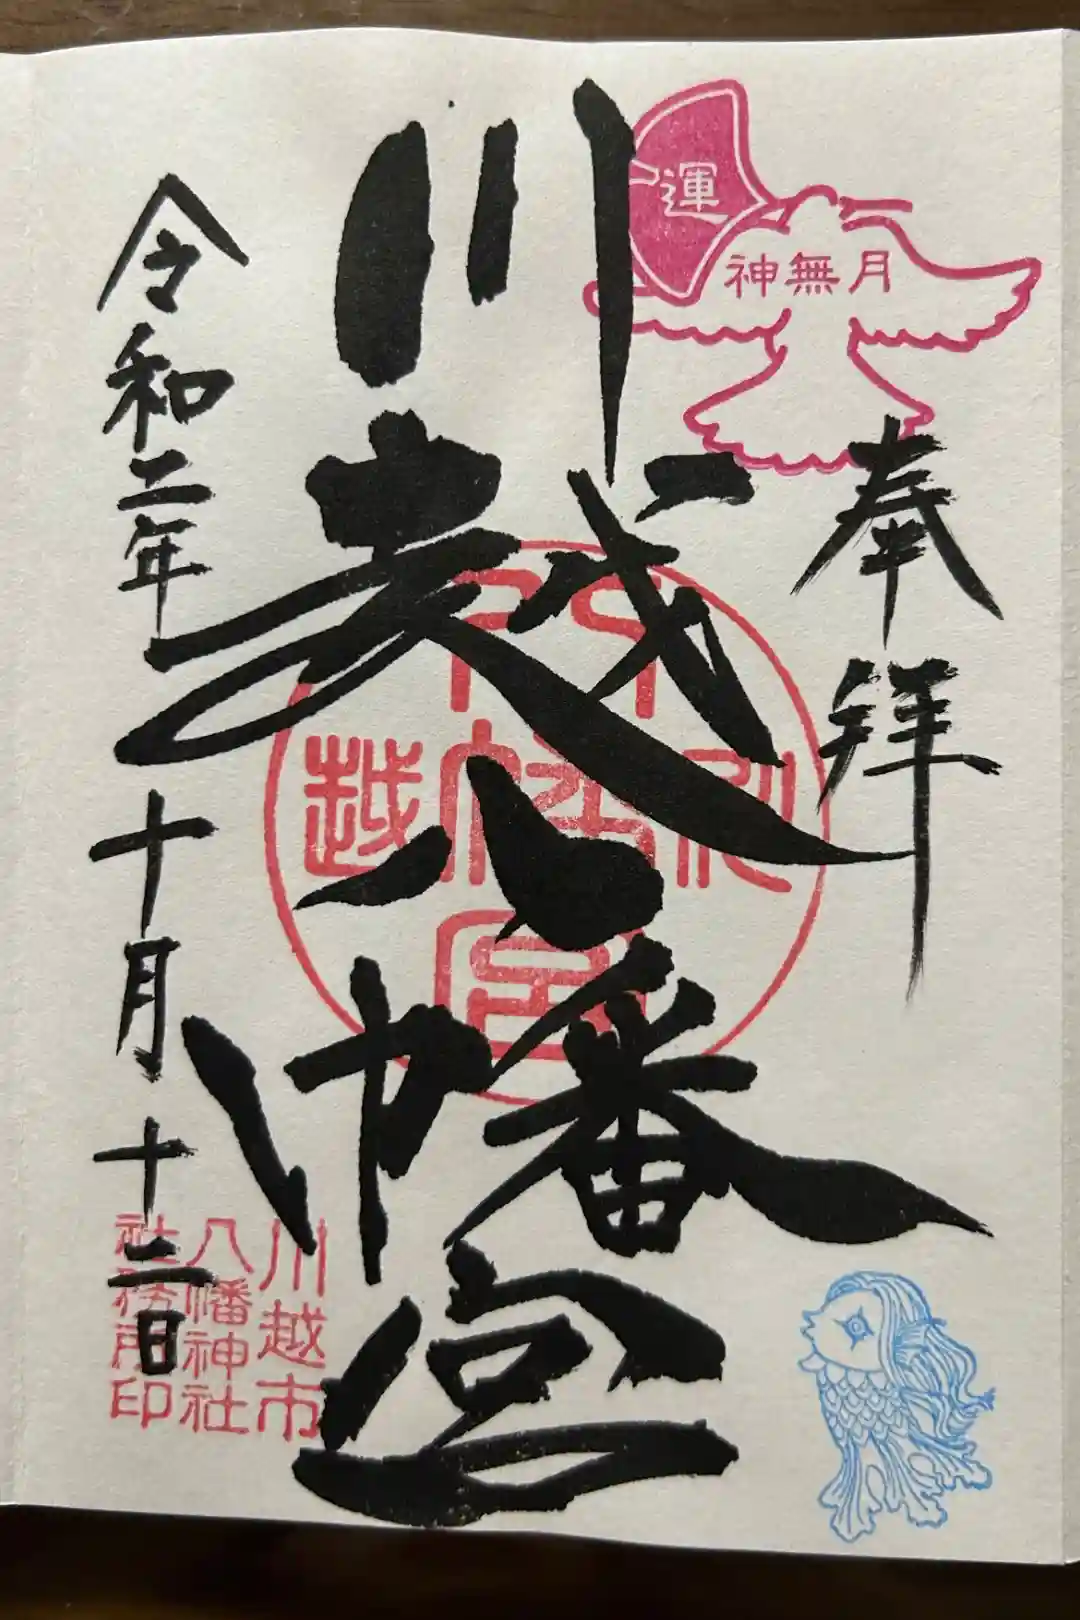 運
神無月
奉拝
川越八幡宮
川越
八幡宮
令和二年十月十二日
川越市
八幡神社
社務所印